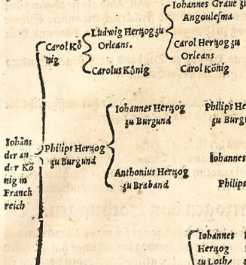 Johannes Graue zu
Angoulesma
Ludwig Hertzog zu
Orleans.
Carol Kö
nig
Carol Hertzog zu
Orleans
Carol König
Carolus König
Johannes Hertzog
zu Burgund
Philips He
zu Bu
Johans
der an
der Kö
nig in
Franck
reich
Philips Hertzog
zu Burgund
Johannes
Anthonius Hertzog
zu Braband
Philips
Johannes
Hertzog
zu Loth.